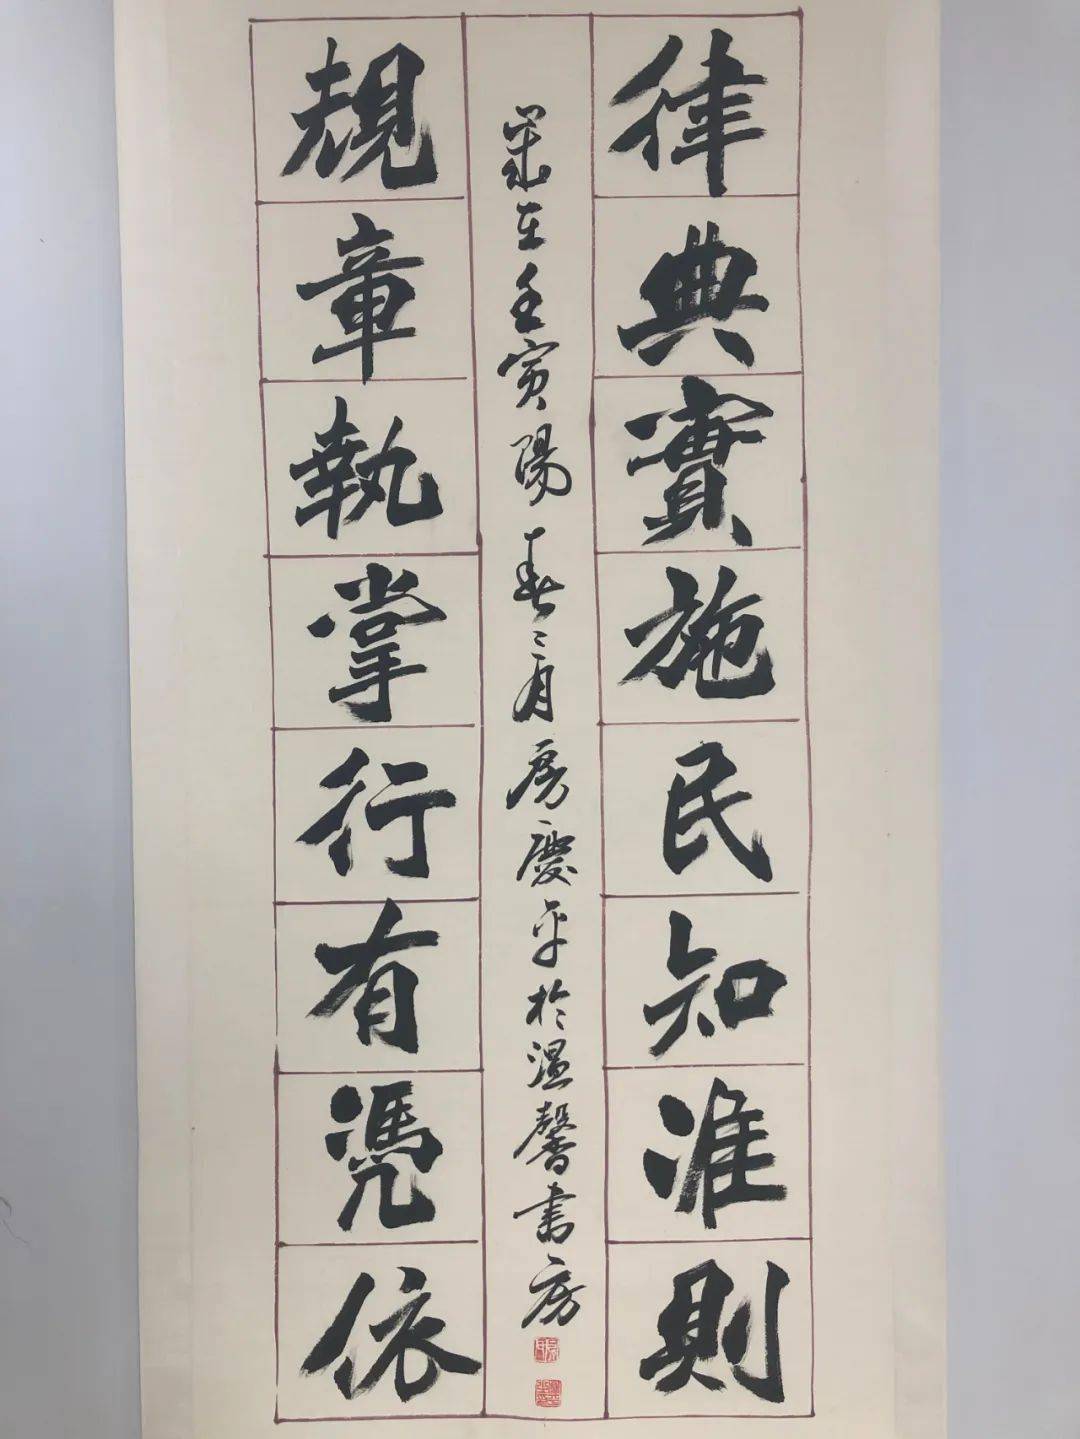 律典實施民知准則
歲在壬寅陽春三月房慶平於溫馨书房
規章執掌行有憑依